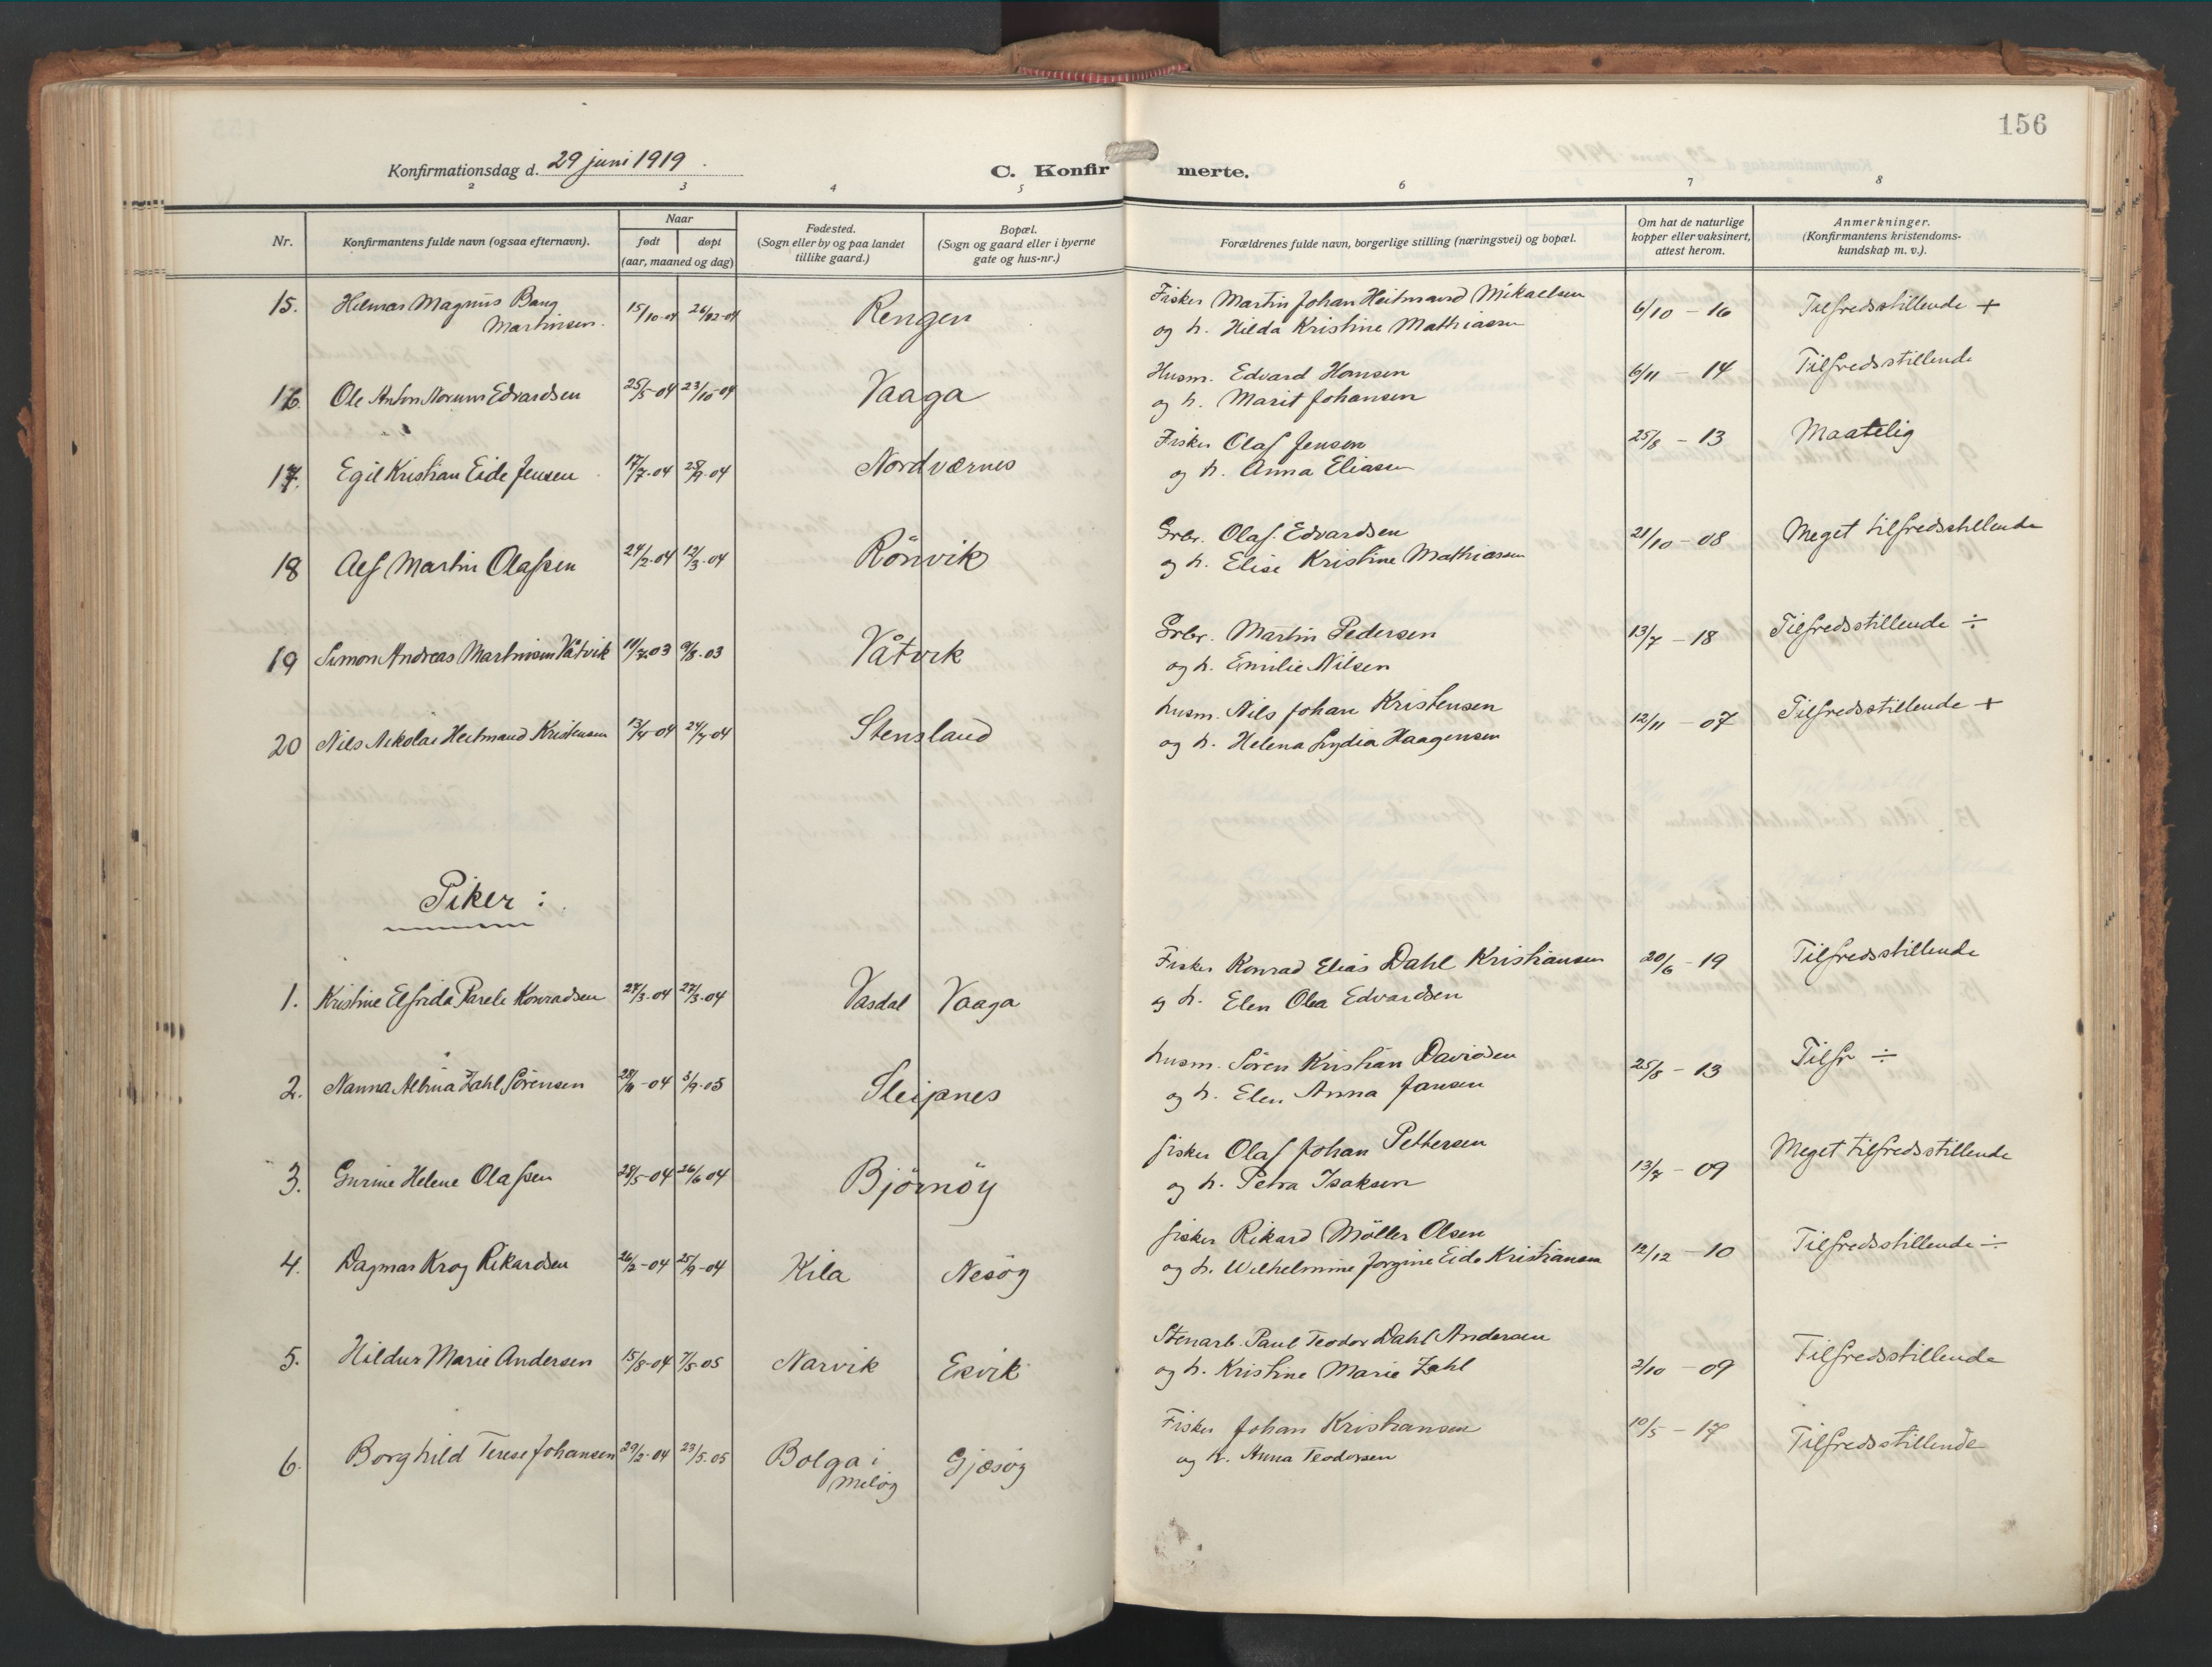 156
Konfirmationsdag d. 29 juni 1919.
C. Konfirmerte.
2 3 4 5 6 7 8
Nr.
Konfirmantens fulde navn (ogsaa efternavn).
Naar
født døpt
(aar, maaned og dag)
Fødested.
(Sogn eller by og paa landet
tillike gaard.)
Bopæl.
(Sogn og gaard eller i byerne
gate og hus-nr.)
Forældrenes fulde navn, borgerlige stilling (næringsvei) og bopæl.
Om hat de naturlige
kopper eller vaksinert,
attest herom.
Anmerkninger.
(Konfirmantens kristendoms-
kundskap m. v.).
15. Hilmar Magnus Bang 15/10-04 26/12-04 Rengen Fisker Martin Johan Heitmand Mikaelsen 6/10 - 16 Tilfredsstillende +
Martinsen. og h. Hilda Kristine Mathiassen
16. Ole Anton Norum Edvardsen 25/5-04 23/10-04 Vaaga Husm. Edvard Hansen 6/11 - 14 Tilfredsstillende
og h. Marit Johansen
17. Egil Kristian Eide Jensen 17/7-04 25/9-04 Nordværnes Fisker Olaf Jenson 25/8 - 13 Maatelig
og h. Anna Eliasen
18 Alf Martin Olafsen 24/2-04 12/3-04 Rönvik Grbr. Olaf Edvardsen 21/10 - 08 Meget tilfredsstillende
og h. Elise Kristine Mathiassen
19 Simon Andreas Martinsen Våtvik 11/7-03 9/8-03 Våtvik Grbr. Martin Pedersen 13/7 - 18 Tilfredsstillende ÷
og h. Emilie Nilsen
20 Nils Nikolai Heitmand Kristensen 13/4-04 24/7-04 Stensland husm. Nils Johan Kristensen 12/11 - 07 Tilfredsstillende +
og h. Helena Lydia Haagensen
Piker :
1. Kristine Elfrida Parele Konradsen 27/3-04 27/3-04 Vasdal Vaaga Fisker Konrad Elias Dahl Kristiansen 20/6 - 19 Tilfredsstillende
og h. Elen Olea Edvardsen
2. Nanna Albina Zahl Sörensen 28/11-04 3/9-05 Sleipnes husm. Sören Kristian Davidsen 25/8 - 13 Tilfr ÷
og h. Elen Anna Jansen
3. Gurine Helene Olafsen 28/5-04 26/6 04 Björnöy fisker Olaf Johan Pettersen 13/7 - 09 Meget tilfredsstillende
og h. Petra Isaksen
4. Dagmar Krog Rikardsen 26/2-04 25/9-04 Kila Nesöy fisker Rikard Möller Olsen 12/12 - 10 Tilfredsstillende ÷
og h. Wilhelmine Jorgine Eide Kristiansen
5. Hildur Marie Andersen 15/8-04 7/5-05 Narvik Esvik Stenarb. Paul Teodor Dahl Andersen 2/10 - 09 Tilfredsstillende
og h. Kristine Marie Zahl
6. Borghild Terese Johansen 29/2-04 23/5-05 Bolga i Gjæsöy Fisker Johan Kristiansen 10/5 - 17 Tilfredsstillende
Melöy og h. Anna Teodorsen